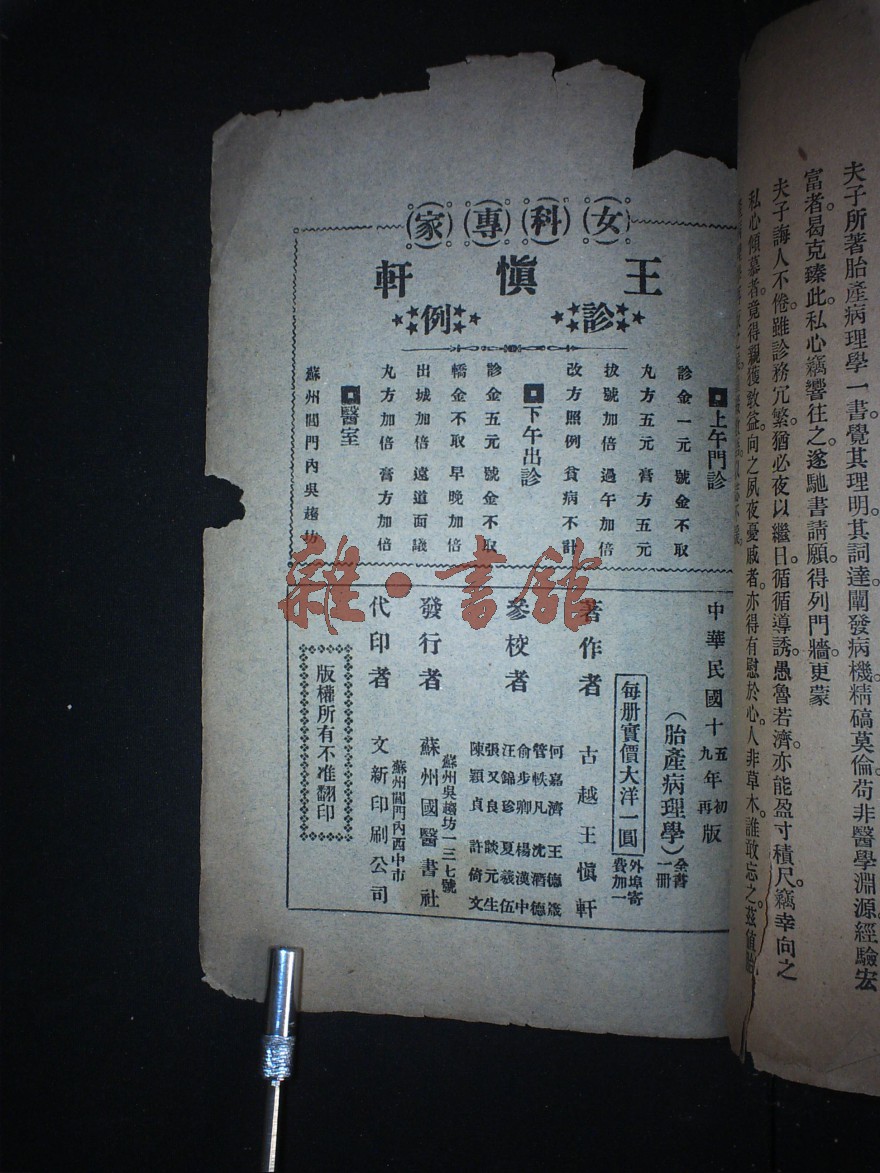 夫子所著胎產病理學一書。覺其理明。其詞達。闡發病機。精礄莫倫。苟非醫學淵源。經驗宏
富者。曷克臻此。私心竊響往之。遂馳書請願。得列門牆。更蒙
夫子誨人不倦。雖診務冗繁。猶必夜以繼日。循循導誘。愚魯若濟。亦能盈寸積尺。竊幸向之
私心傾慕者。竟得親獲敎益。向之夙夜憂戚者。亦得有慰於心。人非草木。誰敢忘之。茲值
女科專家
王愼軒
診例
上午門診
診金一元 號金不取
丸方五元 膏方五元
拔號加倍 過午加倍
改方照例 貧病不計
下午出診
診金五元 號金不取
轎金不取 早晚加倍
出城加倍 遠道面議
丸方加倍 膏方加倍
醫室
蘇州閶門內吳趨坊
中華民國十五年初版
九年再版
(胎產病理學)全書一冊
每册實價大洋一圓
外埠寄費加一
著作者 古越王愼軒
參校者
何嘉濟 王德箴
管軼凡 沈潛德
俞步卿 楊漢中
汪錦珍 夏羲伍
張又良 談元生
陳穎貞 許倚文
發行者 蘇州國醫書社
蘇州吳趨坊一三七號
代印者 文新印刷公司
蘇州閶門內西中市
版權所有不准翻印
雜·書館